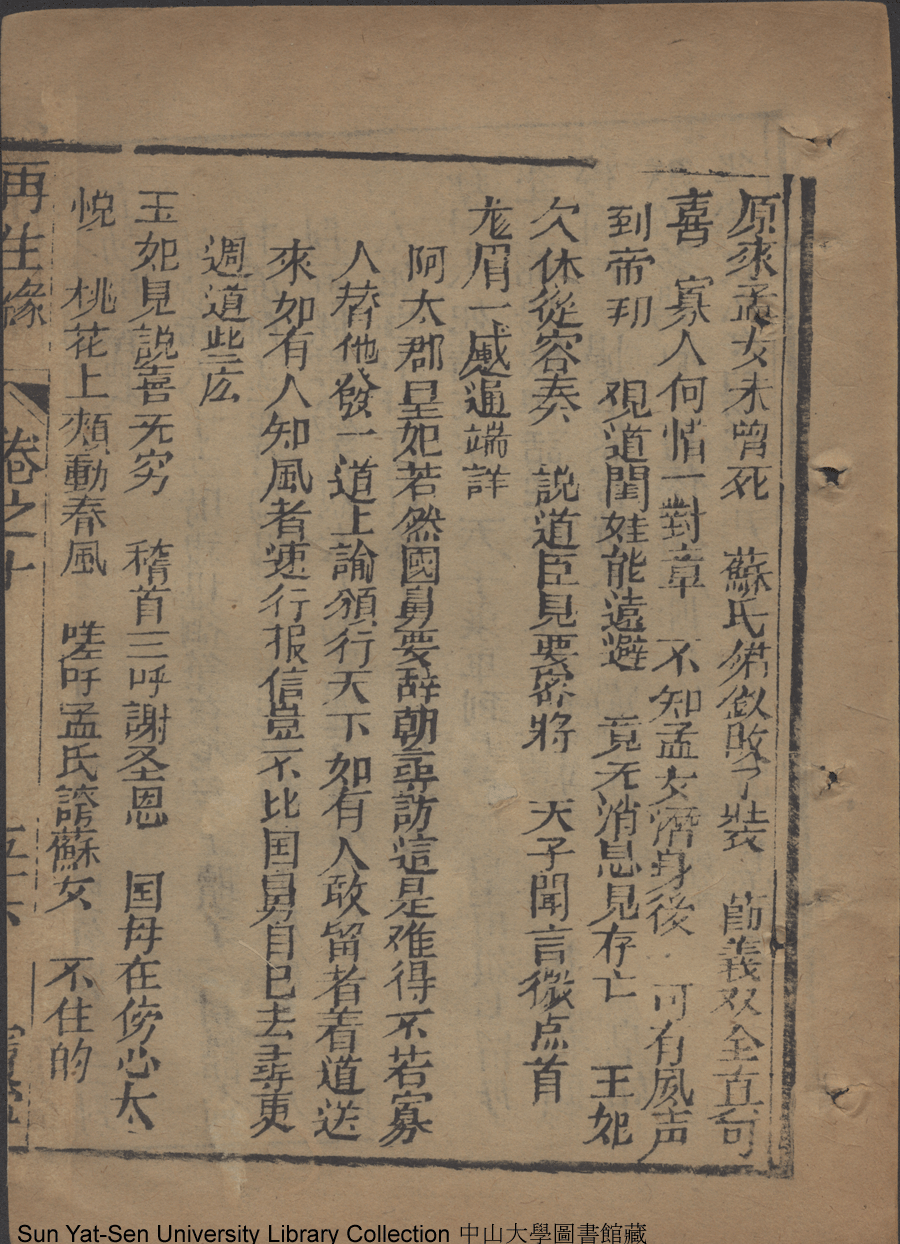 原來孟女未曾死　蘇氏猶欽改了裝　節義双全真可
喜　寡人何惜一對章　不知孟女潛身後　可有風声
到帝邦　覌道閨娃能遠避　竟无消息見存亡　王妃
欠休從容奏　說道臣見要密將　天子聞言微点首
龙眉一蹙逼端详
阿太郡皇妃若然國舅要辞朝尋訪這是难得不若寡
人替他發一道上諭頒行天下如有人敢留者着道送
來如有人知風者速行报信豈不比国舅自已去尋更
週道些広
玉妃見説喜无穷　稽首三呼謝圣恩　国母在傍心太
悅　桃花上頰動春風　嗟呼孟氏誇蘇女　不住的
再生緣　卷之十
Sun Yat-Sen University Library Collection 中山大學圖書館藏